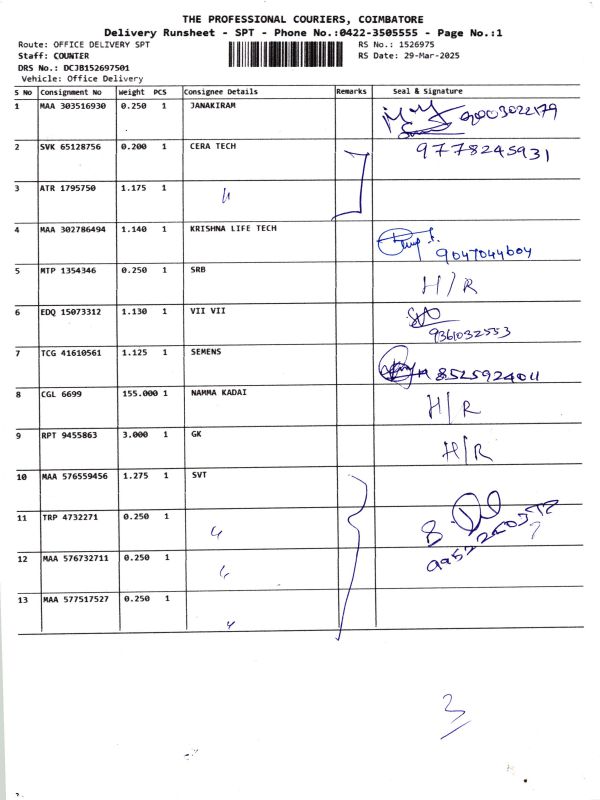 THE PROFESSIONAL COURIERS, COIMBATORE
Delivery Runsheet - SPT - Phone No.:0422-3505555 - Page No.:1
Route: OFFICE DELIVERY SPT RS No.: 1526975
Staff: COUNTER RS Date: 29-Mar-2025
DRS No.: DCJB152697501
Vehicle: Office Delivery
S No Consignment No Weight PCS Consignee Details Remarks Seal & Signature
1 MAA 303516930 0.250 1 JANAKIRAM 9003022179
2 SVK 65128756 0.200 1 CERA TECH 9778245931
3 ATR 1795750 1.175 1 "
4 MAA 302786494 1.140 1 KRISHNA LIFE TECH
9047044604
5 MTP 1354346 0.250 1 SRB H/R
6 EDQ 15073312 1.130 1 VII VII
9361032553
7 TCG 41610561 1.125 1 SEMENS 8525924011
8 CGL 6699 155.000 1 NAMMA KADAI H/R
9 RPT 9455863 3.000 1 GK H/R
10 MAA 576559456 1.275 1 SVT
11 TRP 4732271 0.250 1 "
12 MAA 576732711 0.250 1 "
13 MAA 577517527 0.250 1 "
3